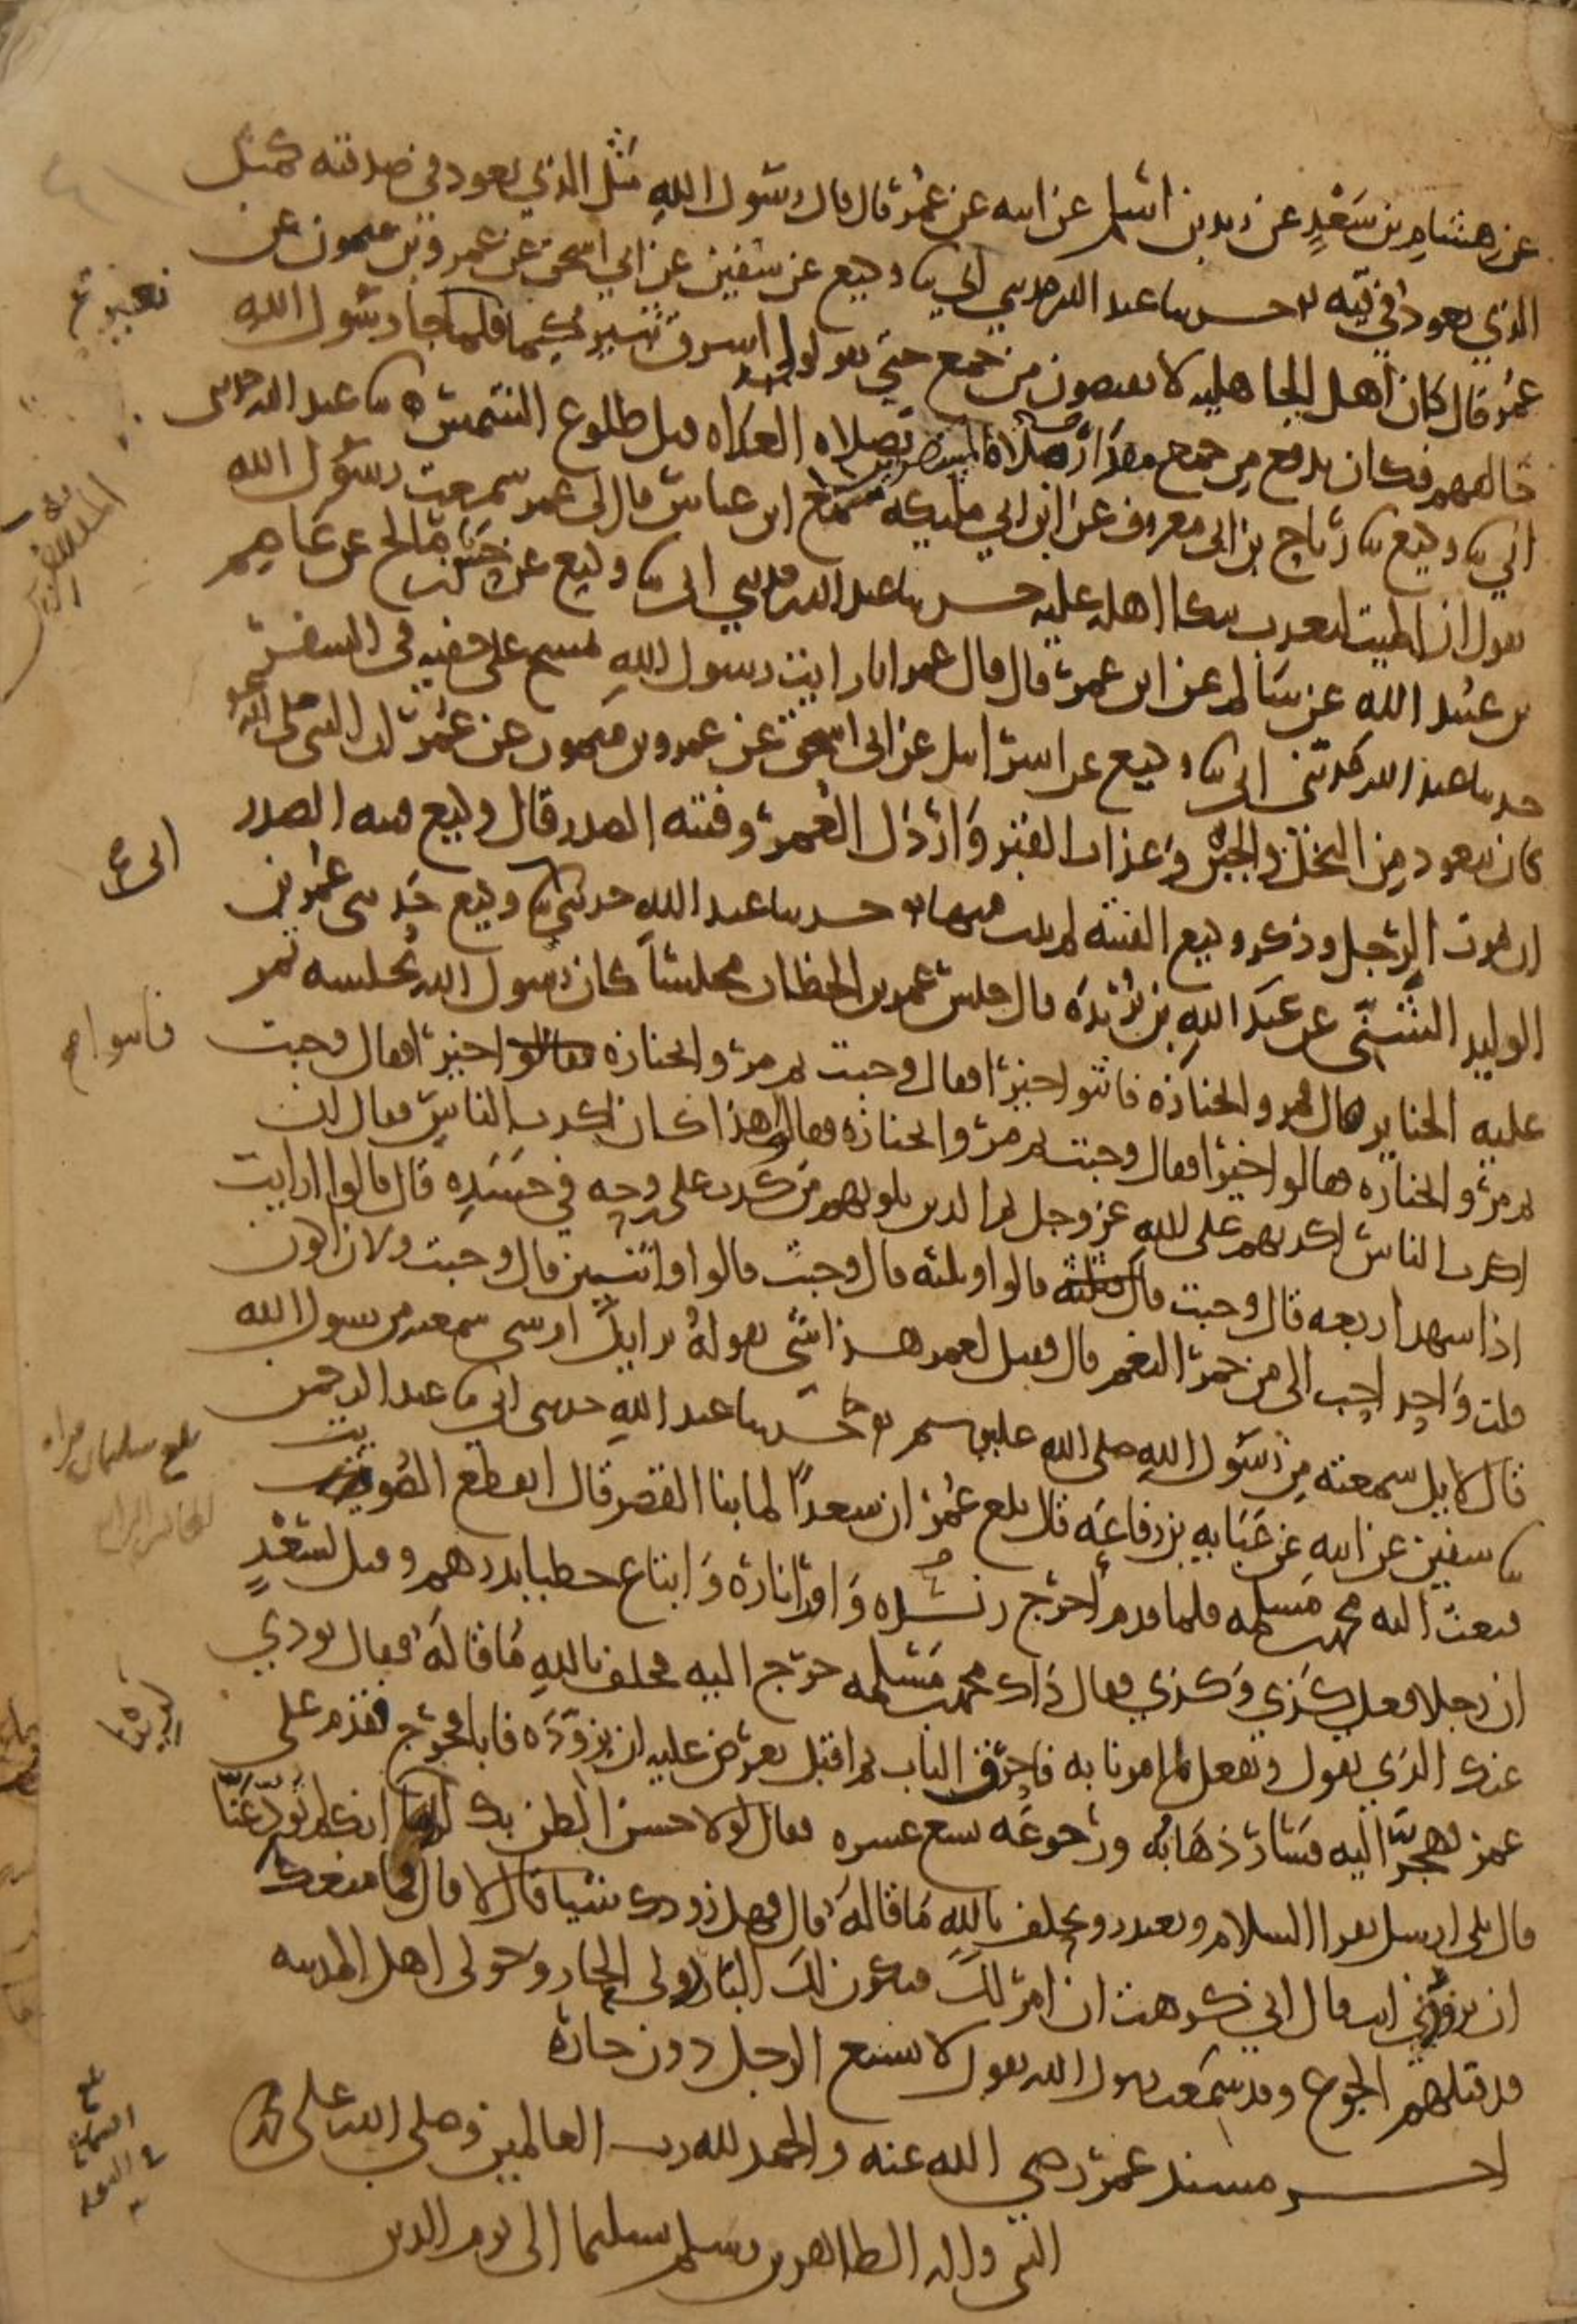 عن هشام بن سَعْدٍ عن زيد بن اسلم عن ابيه عن عُمر قال قال رسول اللهِ مَثَل الذي يعود في صدقته كمثل
الذي يعود في قيّه حدثنا عبد الله حدثني ابي نا وكيع عن سفين عن ابي اسحق عن عمرو بن ميمون عن
عُمر قال كان اهل الجاهليه لا يفيضون من جمع حتي يقولوا اشرق ثبير كيما فلما جا رسول الله
خالفهم فكان يدفع من جمع مقدار صلاة المسفرين بصلاه الغداه قبل طلوع الشمس نا عبد الله حدثني
ابي نا وكيع نا رَباح بن ابي معروف عن ابن ابي مليكه سمع ابن عباس قال لي عمر سمعت رسول الله
يقول ان الميت ليعذب ببكا اهله عليه حدثنا عبد الله حدثني ابي نا وكيع عن حسن بن صالح عن عاصم
بن عبيد الله عن سالم عن ابن عمر قال قال عمر انا رايت رسول اللهِ يمسح على خفيه في السفر
حدثنا عبد الله حدثني ابي نا وكيع عن اسراييل عن ابي اسحق عن عمرو بن ميمون عن عمر ان النبي صلى الله
كان يتعوذ من البخل والجبن وعذاب القبر وَارذل العُمر وفتنه الصدر قال وكيع فتنه الصدر
ان يموت الرجل وذكر وكيع الفتنه لم يتب منها حدثنا عبد اللهِ حدثني نا وكيع حدثني عُمر بن
الوليد الشنّي عن عَبد اللهِ بن بُرَيْدَه قال جلس عمر بن الخطاب مجلساً كان رسول الله يجلسه تمر
عليه الجنايز قال فمروا بجنازه فاثنوا خيرا فقال وجبت ثم مروا بجنازه فقالوا خيرا فقال وجبت
ثم مروا بجنازه فقالوا خيرا فقال وجبت ثم مروا بجنازه فقالوا هذا كان اكذب الناس فقال ان
اكذب الناس اكذبهم على اللهِ عز وجل ثم الذين يلونهم من كذب على روحِه في جَسَدِه قال قالوا ارايت
اذا شهد اربعه قال وجبت قالوا او ثلثه قال وجبت قالوا واثنين قال وجبت ولان اكون
قلت وَاحِد احب الي من حمر النعم قال فقيل لعمر هذا شي تقولهُ برايك ام شي سمعته من رسول الله
قال لا بل سمعته من رسول اللهِ صلى الله عليه وسلم حدثنا عبد اللهِ حدثني ابي نا عبد الرحمن
نا سفين عن ابيه عن عَبَايه بن رفاعَه قال بلغ عُمر ان سعداً لما بنا القصر قال انقطع الصُويت
فبعث اليه محمد بن مسلمه فلما قدم أخرج زنده وَاورا ناره وَابتاع حطبا بدرهم وقيل لسَعْدٍ
ان رجلا فعل كذي وَكذي فقال ذَاك محمد بن مَسلمه خرج اليه فحلف باللهِ مَا قالَهُ فقال نودي
عنك الذي تقول ونفعل ما امرنا به فاحرق الباب ثم اقبل يعرض عليه ان يزوّدَه فابا فخرج فقدم على
عمر فهجّر اليه فسَار ذهَابَه ورجوعَه تسع عشره فقال لولا حسن الظن بك لراينا انك لم تُودّ عَنّا
قال بلى ارسل يقرا السلام ويعتذر ويحلف باللهِ مَا قالهُ قال فهل زودك شيا قال لا قال فما منعك
ان تزودني انت قال اني كرهت ان امر لك فيكون لك البارد ولي الحار وحولي اهل المدينه
قد قتلهم الجوع وقد سَمعت رسول الله يقول لا يشبع الرجل دون جاره
اخر مسند عمر رضي الله عنه والحمد لله رب العالمين وصلى الله على محمد
النبي واله الطاهرين وسلم تسليما الى يوم الدين
نغير
ابي
فاثنوا
لراينا